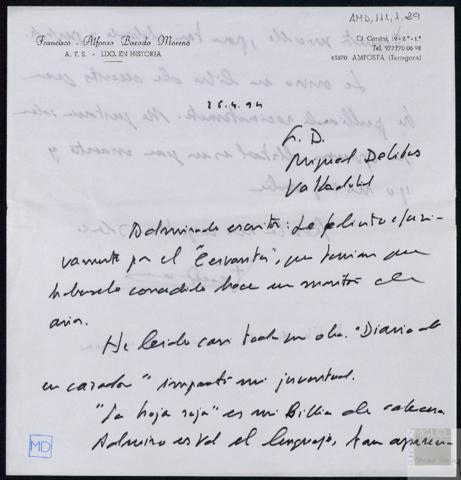 AMD, 111, 1, 29
Francisco - Alfonso Barado Moreno
A. T. S. - LDO. EN HISTORIA
C/. Corsini, 19 - 2.º - 1.ª
Tel. 977/70 06 98
43870 AMPOSTA (Tarragona)
26.4.94
S. D.
Miguel Delibes
Valladolid
Admirado escritor: Le felicito efusi-
vamente por el "Cervantes", que tenían que
habérselo concedido hace un montón de
años.
He leído casi toda su obra. "Diario de
un cazador" impactó mi juventud.
"La hoja roja" es mi Biblia de cabecera
Admiro en Vd el lenguaje, tan aparen-
MD